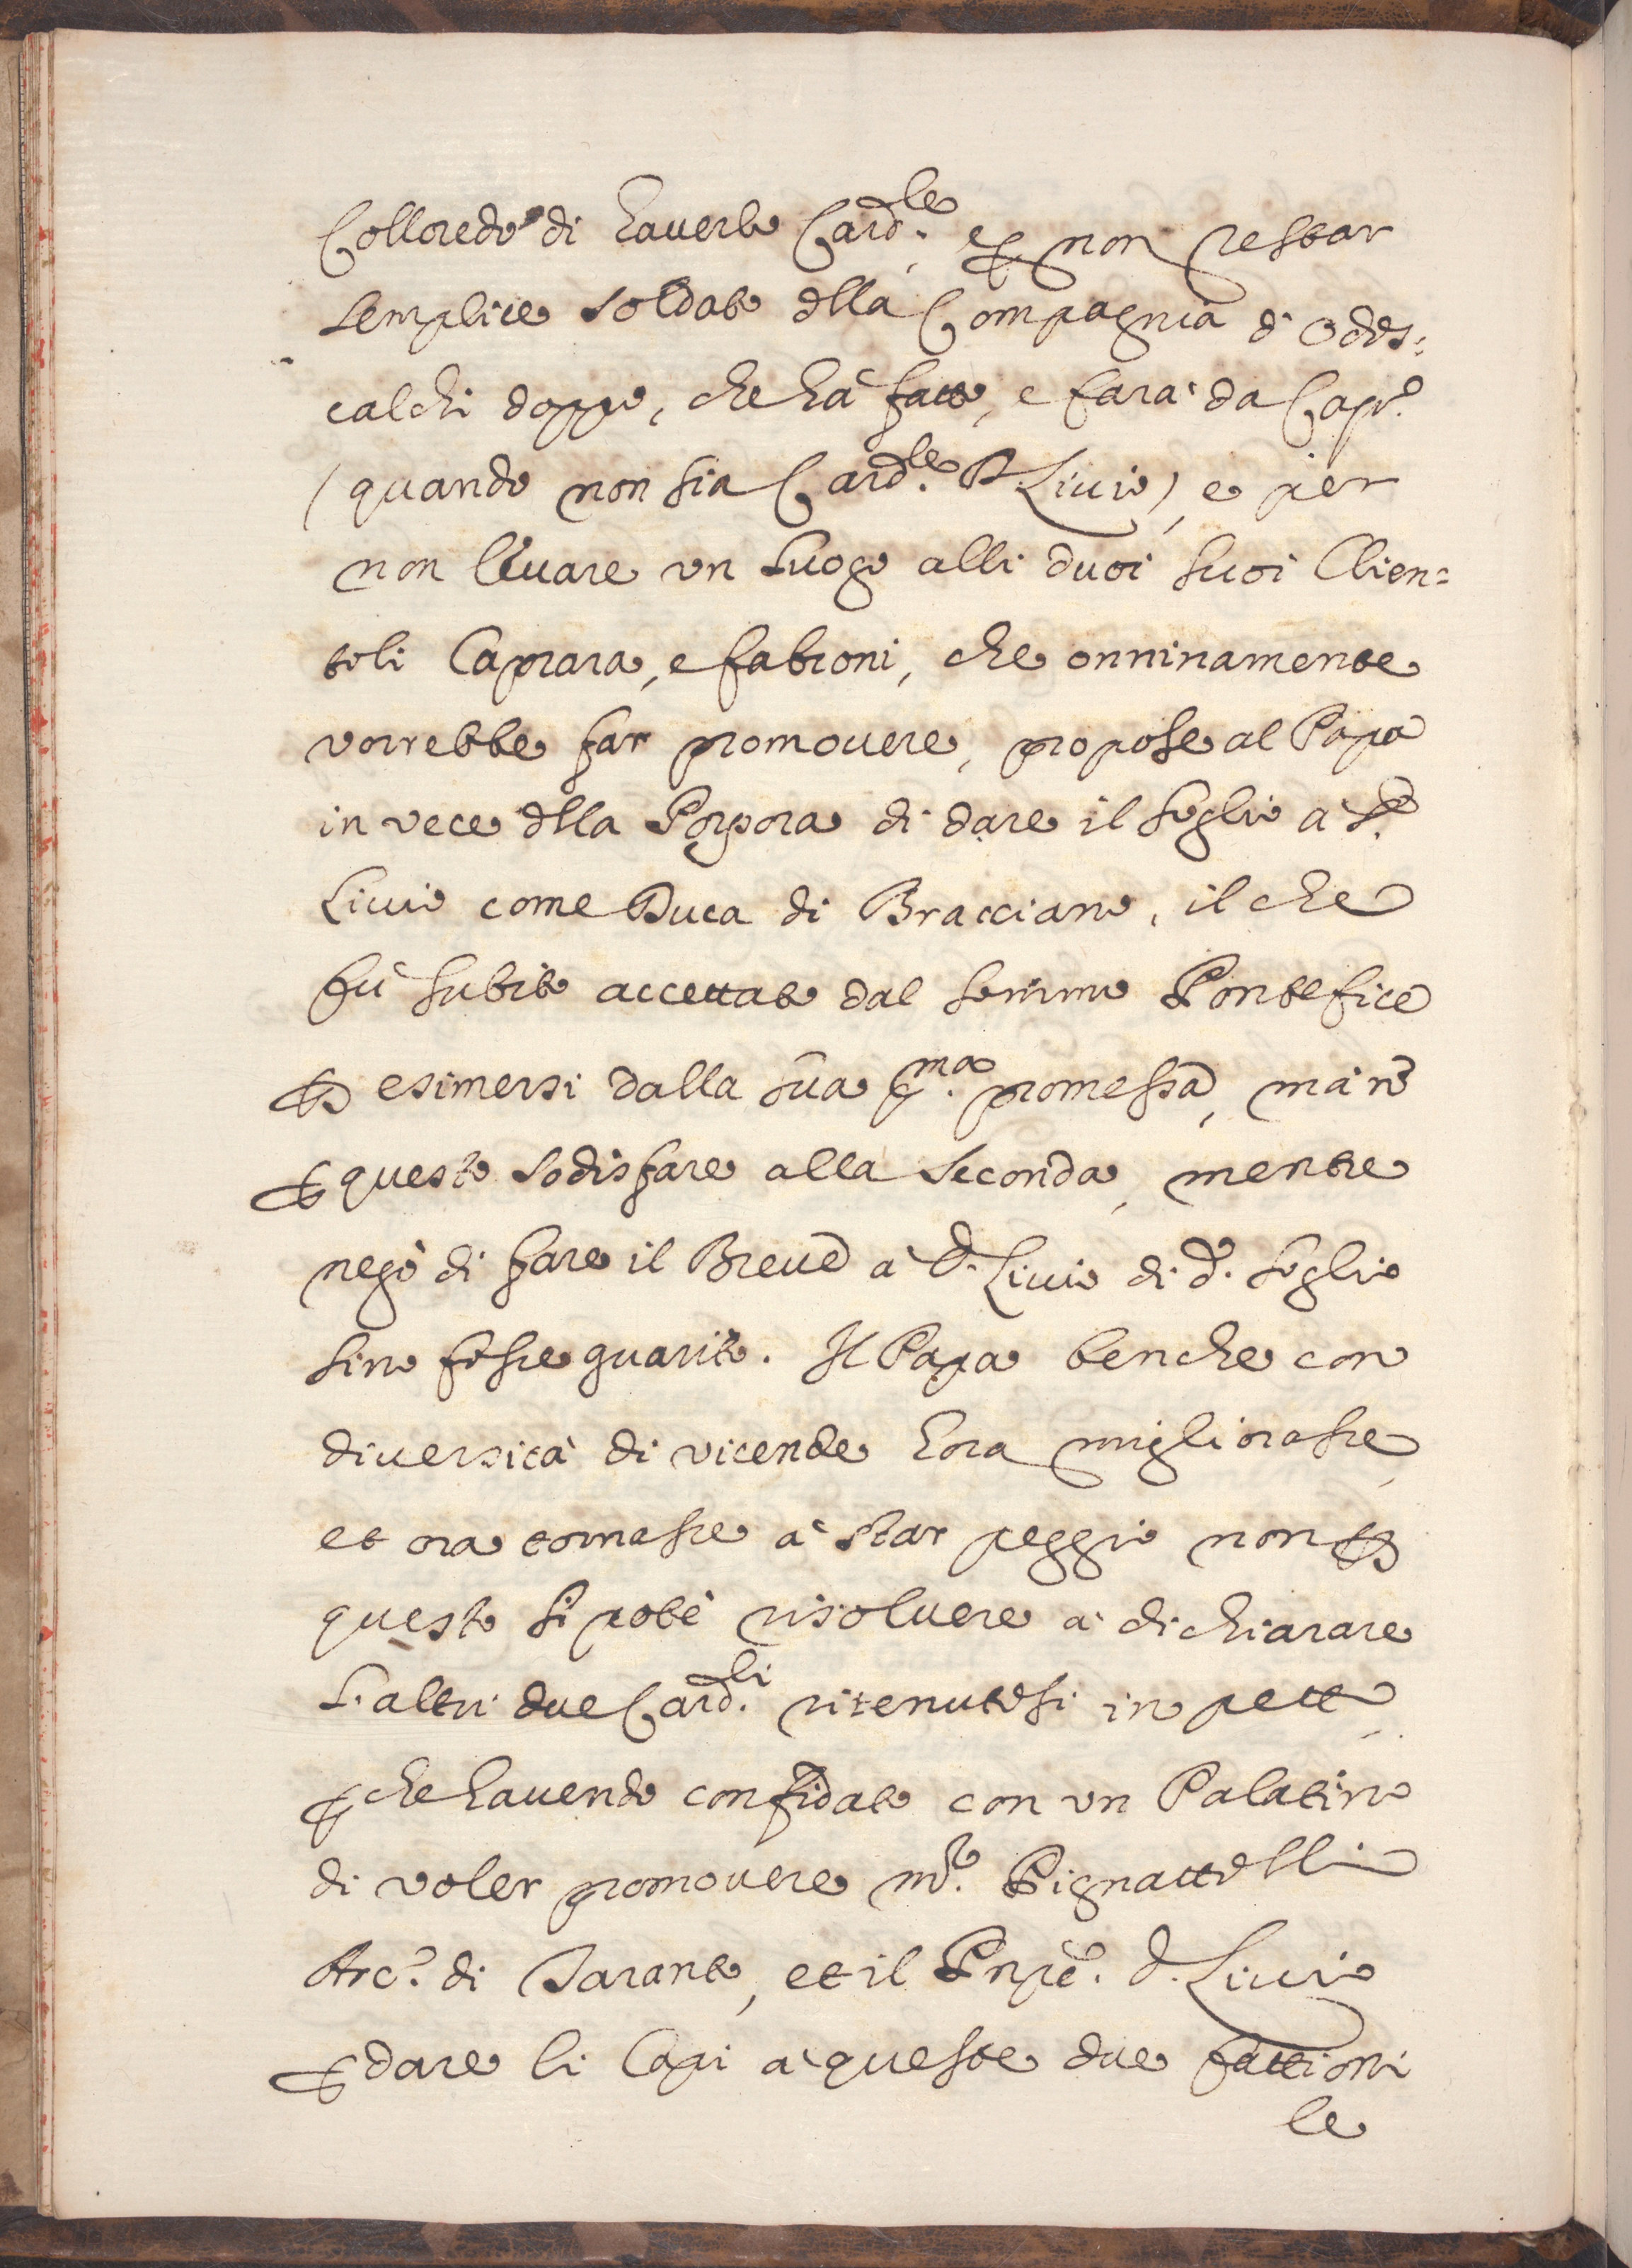 Colloredo di hauerlo Card.le, e p non restar
semplice soldato dlla Compagnia d'Odes=
calchi doppo, che hà fatto, e farà da Cap.o
(quando non sia Card.le D. Liuio), e per
non leuare un luogo alli duoi suoi Clien=
toli Caprara, e fabroni, che onninamente
vorrebbe far promouere, propose al Papa
in vece dlla Porpora di dare il soglio à D.
Liuio come Duca di Bracciano, il che
fù subito accettato dal sommo Pontefice
p esimersi dalla sua p.ma promessa, mà nõ
p questo sodisfare alla seconda, mentre
negò di fare il Breue à D. Liuio di d.o soglio
sino fosse guarito. Il Papa benche con
diuersità di vicende hora migliorasse,
et ora tornasse à star peggio non p
questo si potè risoluere à dichiarare
l'altri due Card.li ritenutosi in petto,
p che hauendo confidato con un Palatino
di voler promouere m.r Pignattelli
Arc.o di Taranto, et il Pnpe. D. Liuio
p dare li Capi à queste due fattioni
le